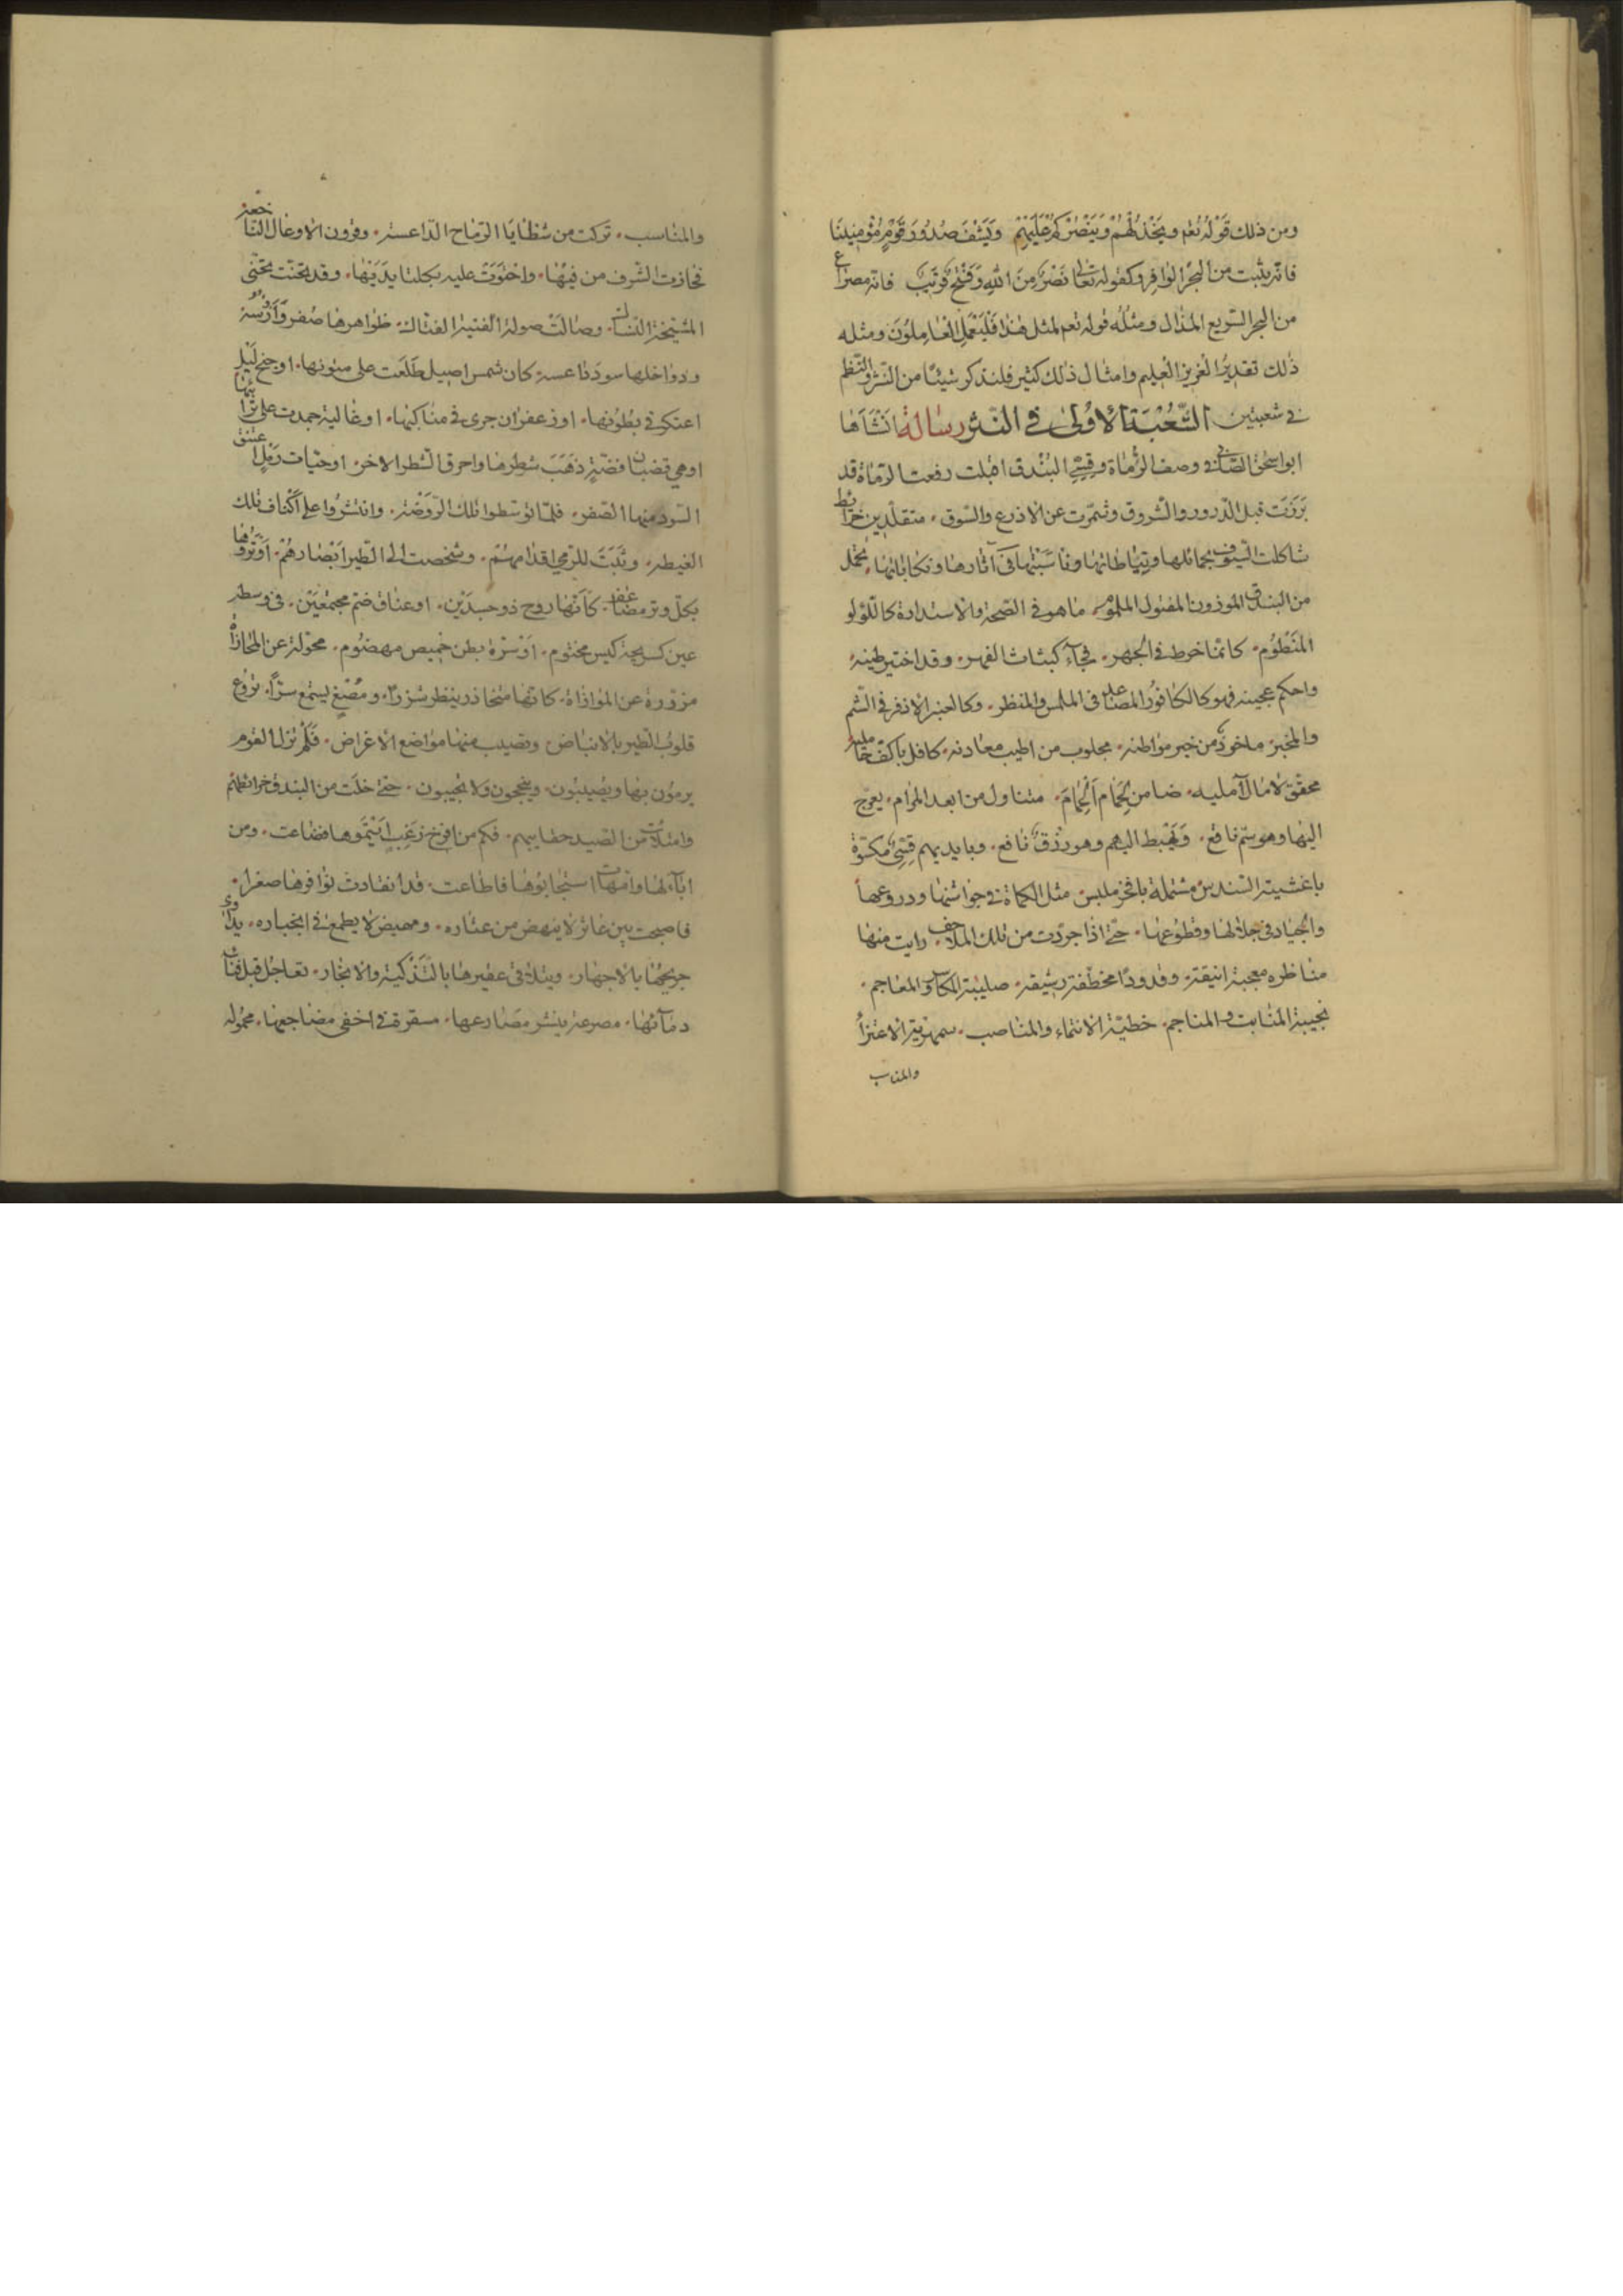 ومن ذلك قوله تعم ويخذلهم وينصركم عليهم ويشف صدور قوم مؤمنينا
فانه يثبت من البحر الوافر وكقوله تعالى نصر من الله وفتح قريب فانه مصراع
من البحر السريع المذال ومثله قوله تعم لمثل هذا فليعمل العاملون ومثله
ذلك تقدير العزيز العليم وامثال ذلك كثير فلنذكر شيئا من النثر والنظم
في شعبتين الشعبة الاولى في النثر رسالة انشأها
ابو اسحق الصابى في وصف الرماة وقسي البندق اقبلت رفعت الرماة قد
برزت قبل الذرور والشروق وشمرت عن الاذرع والسوق، متقلدين خرائط
شاكلت السيوف بحمائلها ونياطاتها وناسبتها في آثارها ونكاياتها، تحمل
من البندق الموزون المفتول الملموم، ما هو في الصحة والاستدارة كاللؤلؤ
المنظوم، كانما خرط في الجهر، فجآء كبنات الفهر، وقد اختير طينه
واحكم عجينه فهو كالكافور المصاعد في الملمس والمنظر، وكالعنبر الاذفر في الشم
والمخبر، ماخوذ من خير مواطنه، مجلوب من اطيب معادنه، كافل باكف حامليه
محقق لامال آمليه، ضامن لحمام الحمام، متناول من ابعد المرام، يعرج
اليها وهو سم ناقع، ويهبط اليهم وهو رزق نافع، وبايديهم قسي مكسوة
باغشية السندس مشتملة بافخر ملبس، مثل الكماة في جواشنها ودروعها
والجياد في جلالها وقطوعها، حتى اذا جردت من تلك الملاحف رايت منها
مناظره معجبة انيقة، وقدودا مخطفة رشيقة، صليبة المكاسر والمعاجم،
نجيبة المنابت والمناجم، خطية الانتماء والمناصب، سمهرية الاعتزاء
والمناسب
والمناسب، تركت من شظايا الرماح الداعسة، وقرون الاوعال الناخعة
فحازت الشرف من فيها، واختوت عليه بكلتا يديها، وقد تحنت تحنى
المشيخة النساك، وصالت صولة الفتية الفتاك، ظواهرها صفر وارسة
ودواخلها سود داعسة، كان شمس اصيل طلعت على متونها، او جنح ليل
اعتكر في بطونها، او زعفران جرى في مناكبها، او غالية جمدت على ترائبها
او هي قضبان فضة ذهب شطرها واحرق الشطر الاخر، او حيات رمل اعتنق
السود منها الصفر، فلما توسطوا تلك الروضة، وانتشروا على اكناف تلك
الغيطة، وثبت للرمي اقدامهم، وشخصت الى الطير ابصارهم، اوتروها
بكل وتر مضاعف، كانها روح ذو جسدين، او عناق ضم مجتمعين، في وسطه
عين كسرجة كيس مختوم، او سرة بطن خميص مهضوم، محولة عن المحاذاة
مزورة عن الموازاة، كانها متحاذر ينظر شزرا، ومصغ يستمع سرا، تروع
قلوب الطير بالانباض، وتصيب منها مواضع الاغراض، فلم تزل القوم
يرمون بها ويصيبون، وينجحون ولا يخيبون، حتى خلت من البندق خرائطهم
وامتلأت من الصيد حقايبهم، فكم من افرخ زغب ايتموها فضاعت، ومن
اباء لها وامهات استجابوها فاطاعت، قد انقادت نوافرها صغرا،
فاصبحت بين عاثر لا ينهض من عثاره، ومهيض لا يطمع في انجباره، يداوى
جريحها بالاجهار، ويتلافى عقيرها بالتذكية والانحار، تعاجل قبل فنآء
دمآئها، مصرعة بنشر مصارعها، مسقرة في اخفى مضاجعها، محموله